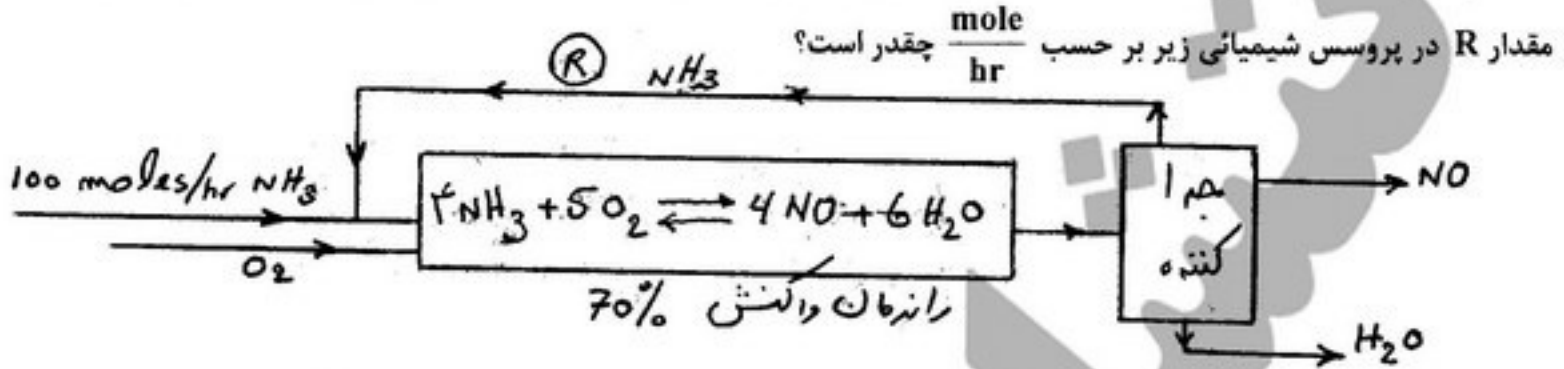 مقدار R در پروسس شیمیائی زیر بر حسب mole/hr چقدر است؟
R NH3
100 moles/hr NH3
O2
۴NH3 + 5O2 ⇌ 4NO + 6H2O
راندمان واکنش 70%
جدا کننده
NO
H2O